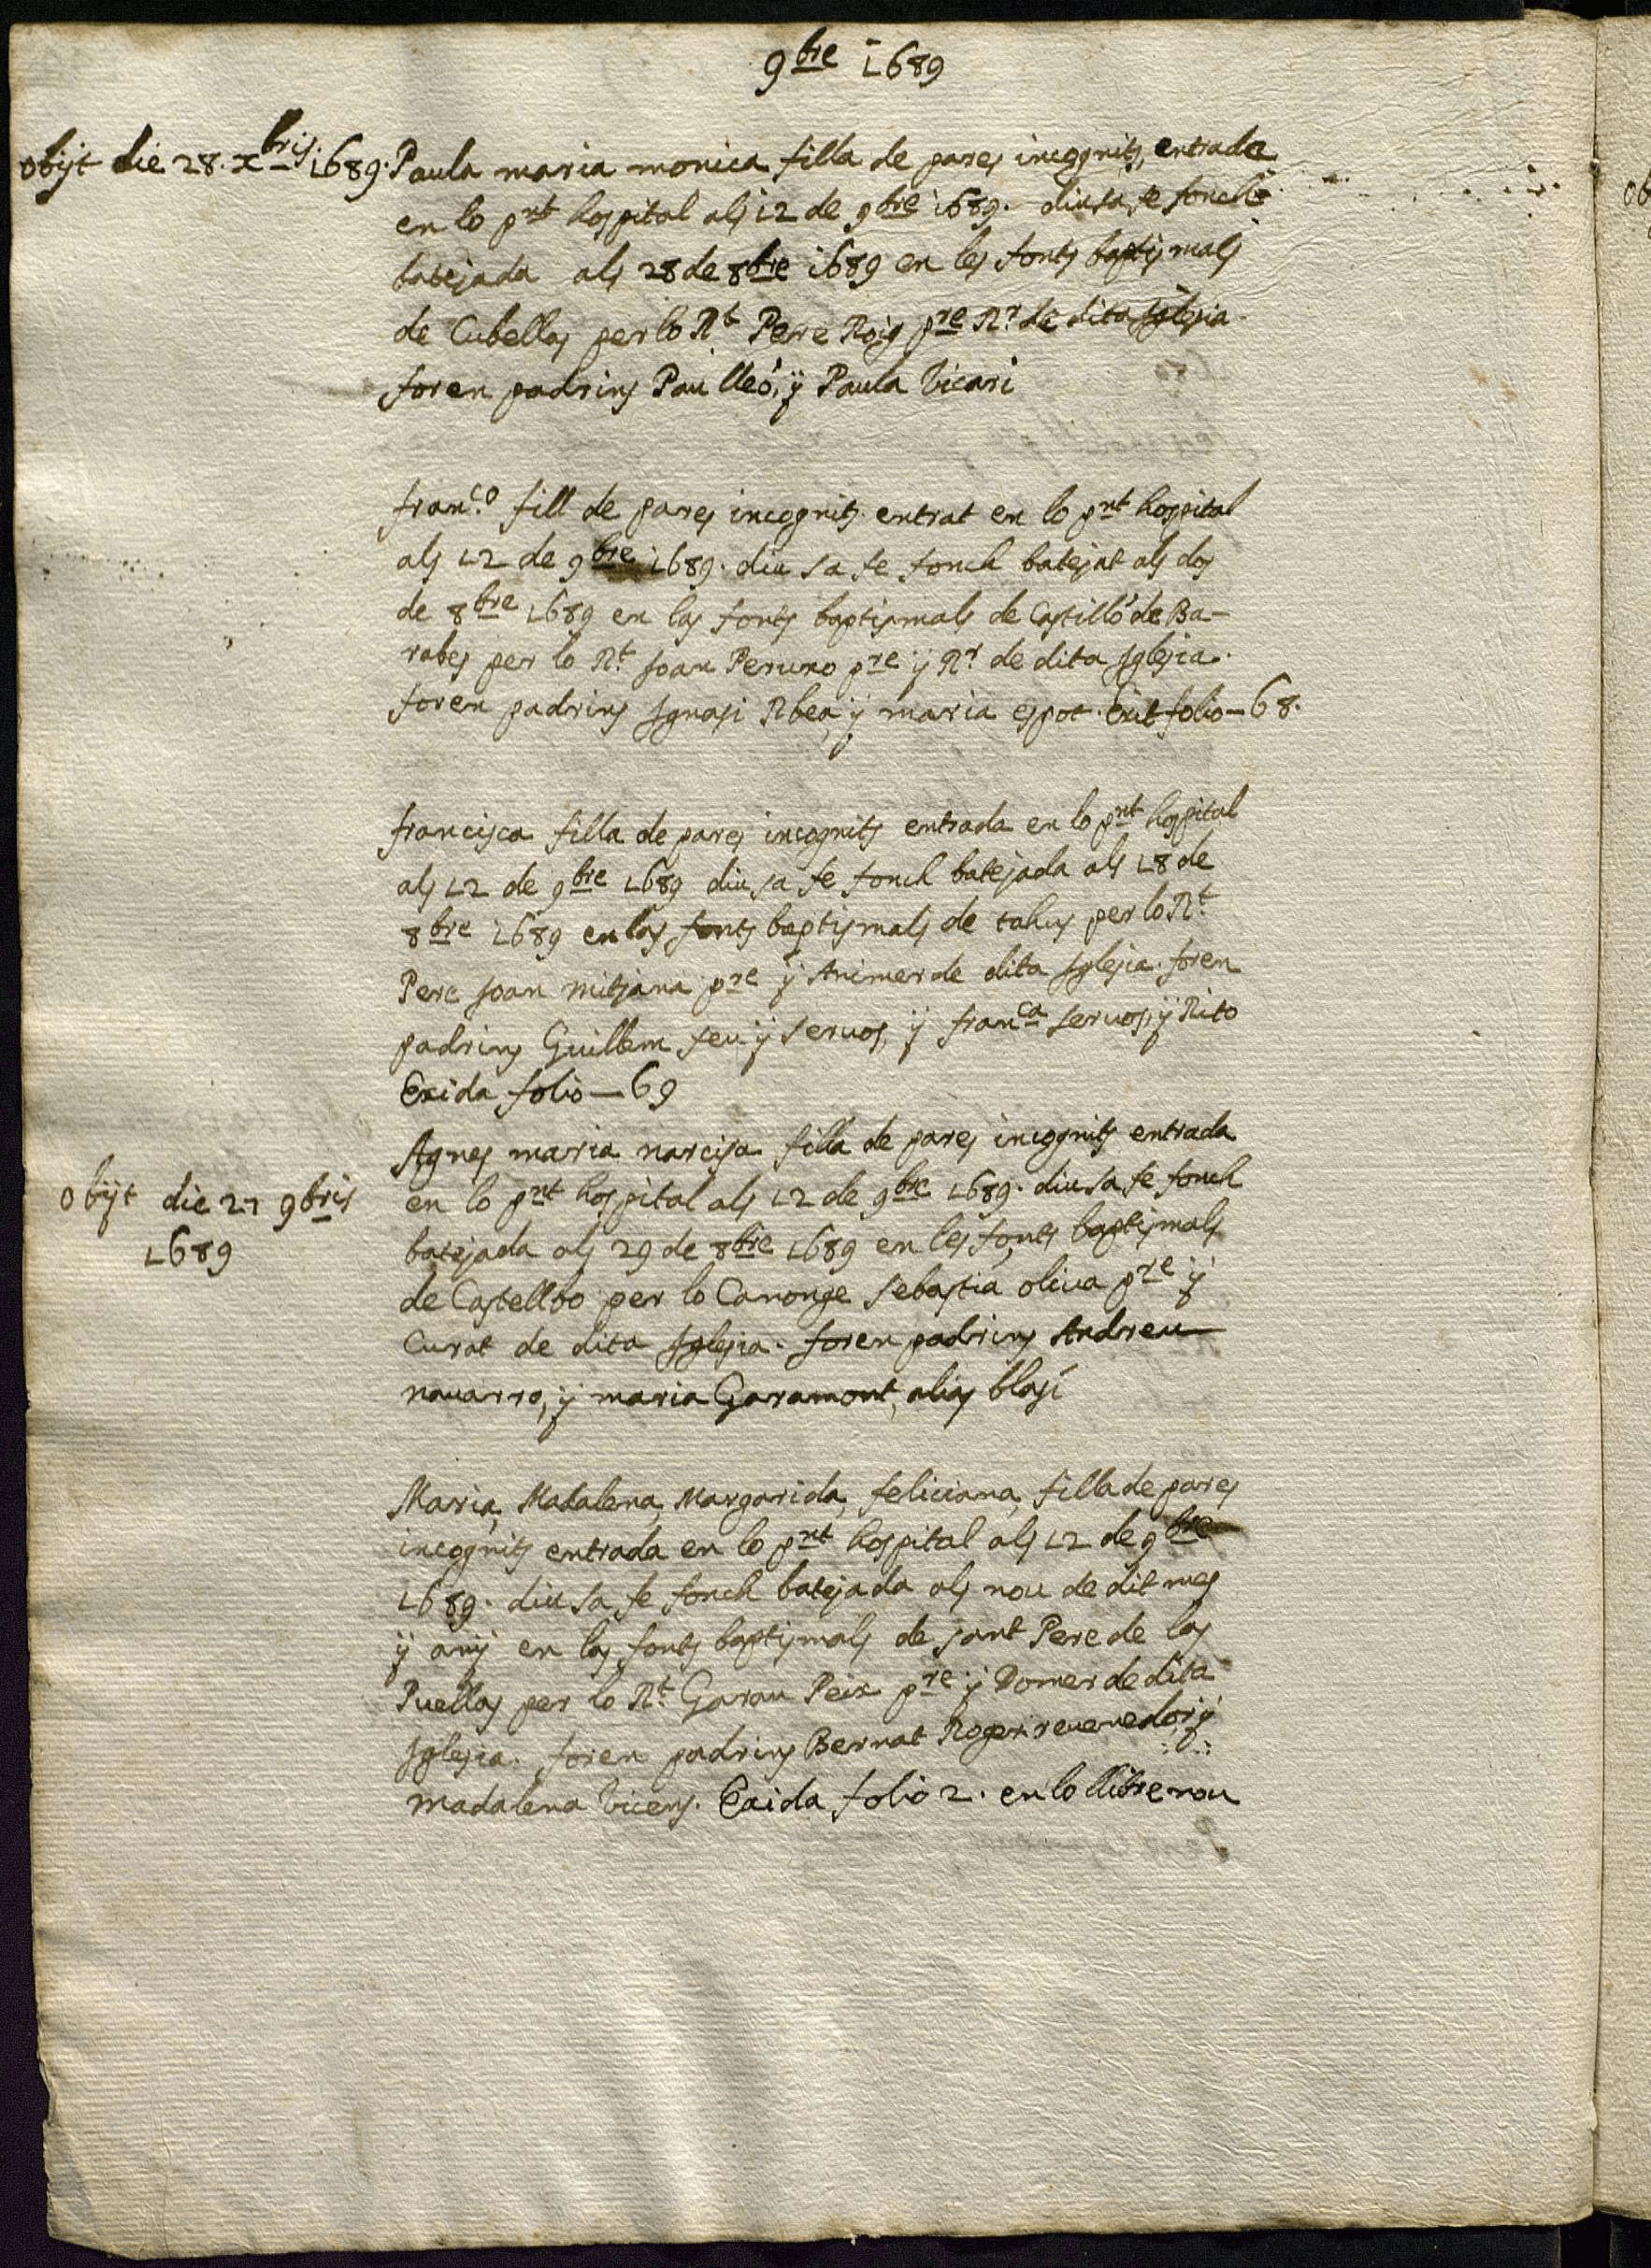 9bre 1689
obijt die 28. xbris 1689.
Paula maria monica filla de pares incognits, entrada
en lo pnt hospital als 12 de 9bre 1689. diusa se fonch
batejada als 28 de 8bre 1689 en les fonts baptismals
de Cubellas per lo Rt Pere Roig pre Rr de dita Iglesia.
foren padrins Pau lleó, ÿ Paula Vicari
franco fill de pares incognits entrat en lo pnt hospital
als 12 de 9bre 1689. diu sa se fonch batejat als dos
de 8bre 1689 en las fonts baptismals de Castilló de Ba-
rabes per lo Rt Joan Peruno pre ÿ Rr de dita Iglesia.
foren padrins Ignasi Rbea, ÿ maria espot. Exit folio - 68.
francisca filla de pares incognits entrada en lo pnt hospital
als 12 de 9bre 1689 diu sa se fonch batejada als 18 de
8bre 1689 en las fonts baptismals de tahus per lo Rt
Pere Joan mitjana pre ÿ Animer de dita Iglesia. foren
padrins Guillem feu ÿ seruos, ÿ franca seruos, ÿ Rito
Exida folio - 69
obijt die 27 9bris
1689
Agnes maria narcisa filla de pares incognits entrada
en lo pnt hospital als 12 de 9bre 1689. diu sa se fonch
batejada als 29 de 8bre 1689 en les fonts baptismals
de Castellbo per lo Canonge Sebastia oliua pre ÿ
Curat de dita Iglesia. foren padrins Andreu
nauarro, ÿ maria Garamont, alias blasi
Maria, Madalena, Margarida, feliciana, filla de pares
incognits entrada en lo pnt hospital als 12 de 9bre
1689. diu sa se fonch batejada als nou de dit mes
ÿ anÿ en las fonts baptismals de sant Pere de las
Puellas per lo Rt Garau Peix pre ÿ Domer de dita
Iglesia. foren padrins Bernat Roger reuenedor, ÿ
madalena Vicens. Exida folio 2. en lo llibre nou